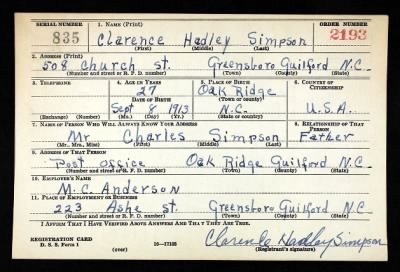 SERIAL NUMBER 1. NAME (Print) ORDER NUMBER
835 Clarence Hadley Simpson 2193
(First) (Middle) (Last)
2. ADDRESS (Print)
508 Church st. Greensboro Guilford N.C.
(Number and street or R. F. D. number) (Town) (County) (State)
3. TELEPHONE 4. AGE IN YEARS 5. PLACE OF BIRTH 6. COUNTRY OF CITIZENSHIP
27 Oak Ridge
DATE OF BIRTH (Town or county)
Sept 8 1913 N.C. U.S.A.
(Exchange) (Number) (Mo.) (Day) (Yr.) (State or country)
7. NAME OF PERSON WHO WILL ALWAYS KNOW YOUR ADDRESS 8. RELATIONSHIP OF THAT PERSON
Mr Charles Simpson Father
(Mr., Mrs., Miss) (First) (Middle) (Last)
9. ADDRESS OF THAT PERSON
Post office Oak Ridge Guilford N.C.
(Number and street or R. F. D. number) (Town) (County) (State)
10. EMPLOYER'S NAME
M.C. Anderson
11. PLACE OF EMPLOYMENT OR BUSINESS
223 Ashe st. Greensboro Guilford N.C.
(Number and street or R. F. D. number) (Town) (County) (State)
I AFFIRM THAT I HAVE VERIFIED ABOVE ANSWERS AND THAT THEY ARE TRUE.
REGISTRATION CARD
D. S. S. Form 1 (over) 16-17105 Clarence Hadley Simpson
(Registrant's signature)